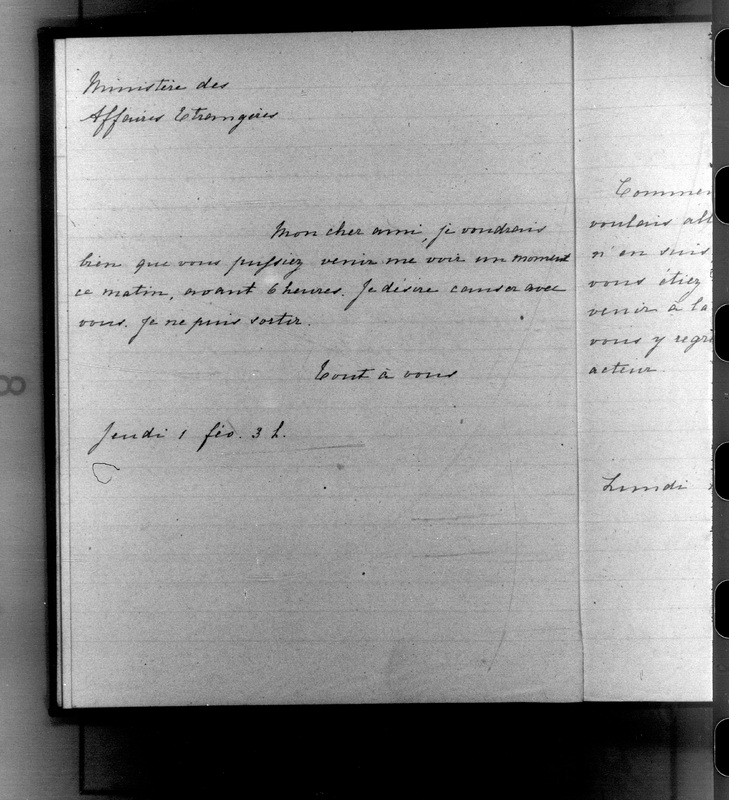 Ministère des
Affaires Etrangères
Mon cher ami, je voudrais
bien que vous pussiez venir me voir un moment
ce matin, avant 6 heures. Je désire causer avec
vous. Je ne puis sortir.
Tout à vous
Jeudi 1 fév. 3 h.
Commen
voulais all
n'en suis
vous étiez
venir à la
vous y regr
acteur.
Lundi
8